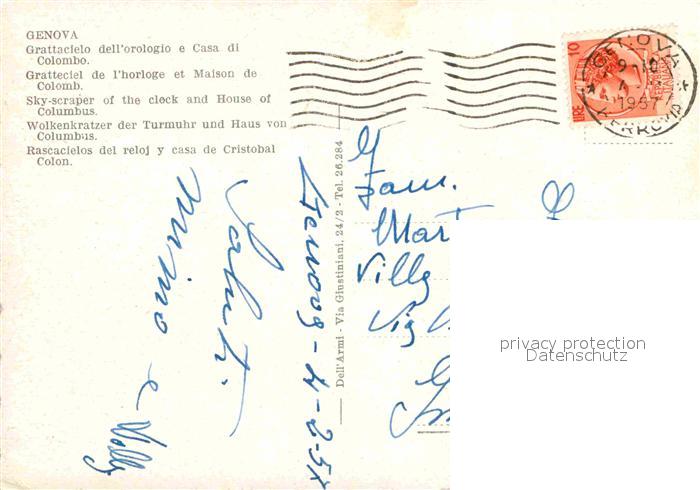 GENOVA
Grattacielo dell'orologio e Casa di
Colombo.
Gratteciel de l'horloge et Maison de
Colomb.
Sky-scraper of the clock and House of
Columbus.
Wolkenkratzer der Turmuhr und Haus von
Columbus.
Rascacielos del reloj y casa de Cristobal
Colon.
Saluti.
Mimmo e Villy
Genova - 4-2-57
Dell'Armi - Via Giustiniani, 24/2 - Tel. 26.284
LIRE 10
GENOVA
9-10
1957
FERROVIA
Fam.
Mart
Villy
Via
privacy protection
Datenschutz